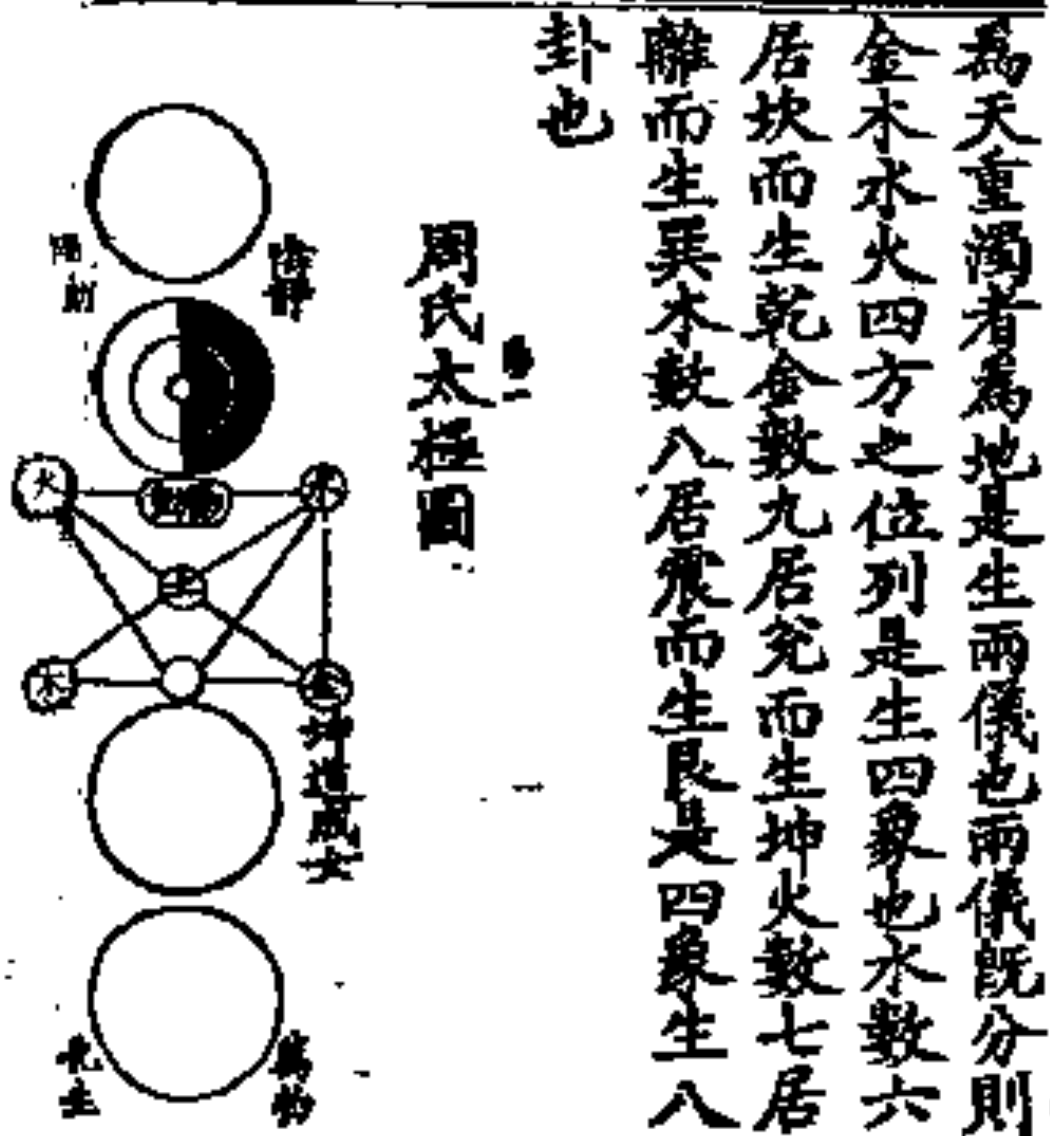 為天重濁者為地是生兩儀也兩儀既分則
金木水火四方之位列是生四象也水數六
居坎而生乾金數九居兌而生坤火數七居
離而生巽木數八居震而生艮是四象生八
卦也
周氏太極圖
陰靜
陽動
火
水
土
木
金
坤道成女
萬物
化生